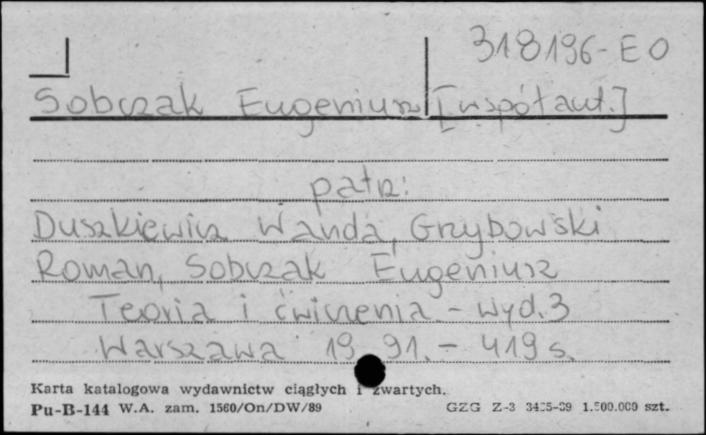 318196-EO
Sobczak Eugeniusz [współaut.]
patrz:
Duszkiewicz Wanda, Grzybowski
Roman, Sobczak Eugeniusz
Teoria i ćwiczenia - wyd. 3
Warszawa 1991. - 419 s.
Karta katalogowa wydawnictw ciągłych i zwartych.
Pu-B-144 W.A. zam. 1560/On/DW/89 GZG Z-3 1.500.000 szt.